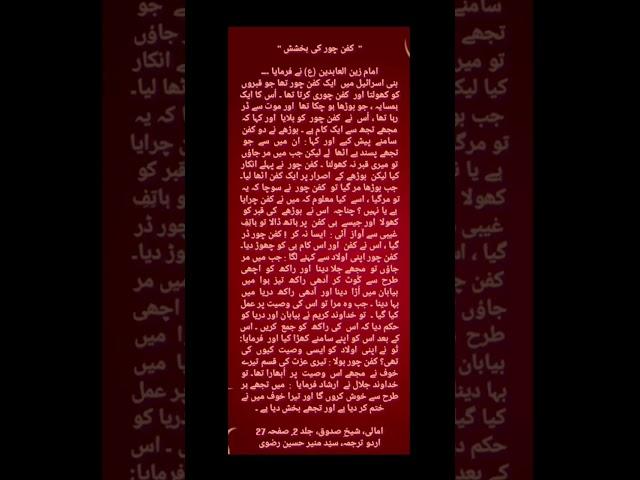 " کفن چور کی بخشش "
امام زین العابدین (ع) نے فرمایا ---
بنی اسرائیل میں ایک کفن چور تھا جو قبروں
کو کھولتا اور کفن چوری کرتا تھا ۔ اُس کا ایک
ہمسایہ ، جو بوڑھا ہو چکا تھا اور موت سے ڈر
رہا تھا ، اُس نے کفن چور کو بلایا اور کہا کہ
مجھے تجھ سے ایک کام ہے ۔ بوڑھے نے دو کفن
سامنے پیش کیے اور کہا : ان میں سے جو
تجھے پسند ہے اٹھا لے لیکن جب میں مر جاؤں
تو میری قبر نہ کھولنا ۔ کفن چور نے پہلے انکار
کیا لیکن بوڑھے کے اصرار پر ایک کفن اٹھا لیا۔
جب بوڑھا مر گیا تو کفن چور نے سوچا کہ یہ
تو مرگیا ، اسے کیا معلوم کہ میں نے کفن چرایا
ہے یا نہیں ؟ چناچہ اس نے بوڑھے کی قبر کو
کھولا اور جیسے ہی کفن پر ہاتھ ڈالا تو ہاتِفِ
غیبی سے آواز آئی : ایسا نہ کر ! کفن چور ڈر
گیا ، اس نے کفن اور اس کام ہی کو چھوڑ دیا۔
کفن چور اپنی اولاد سے کہنے لگا : جب میں مر
جاؤں تو مجھے جلا دینا اور راکھ کو اچھی
طرح سے کُوٹ کر آدھی راکھ تیز ہوا میں
بیابان میں اُڑا دینا اور آدھی راکھ دریا میں
بہا دینا ۔ جب وہ مرا تو اس کی وصیت پر عمل
کیا گیا ۔ تو خداوند کریم نے بیابان اور دریا کو
حکم دیا کہ اس کی راکھ کو جمع کریں ۔ اس
کے بعد اس کو اپنے سامنے کھڑا کیا اور فرمایا:
تُو نے اپنی اولاد کو ایسی وصیت کیوں کی
تھی؟ کفن چور بولا : تیری عزت کی قسم تیرے
خوف نے مجھے اس وصیت پر اُبھارا تھا۔ تو
خداوند جلال نے ارشاد فرمایا : میں تجھے ہر
طرح سے خوش کروں گا اور تیرا خوف میں نے
ختم کر دیا ہے اور تجھے بخش دیا ہے ۔
امالی، شیخ صدوق، جلد 2, صفحہ 27
اردو ترجمہ، سیّد منیر حسین رضوی